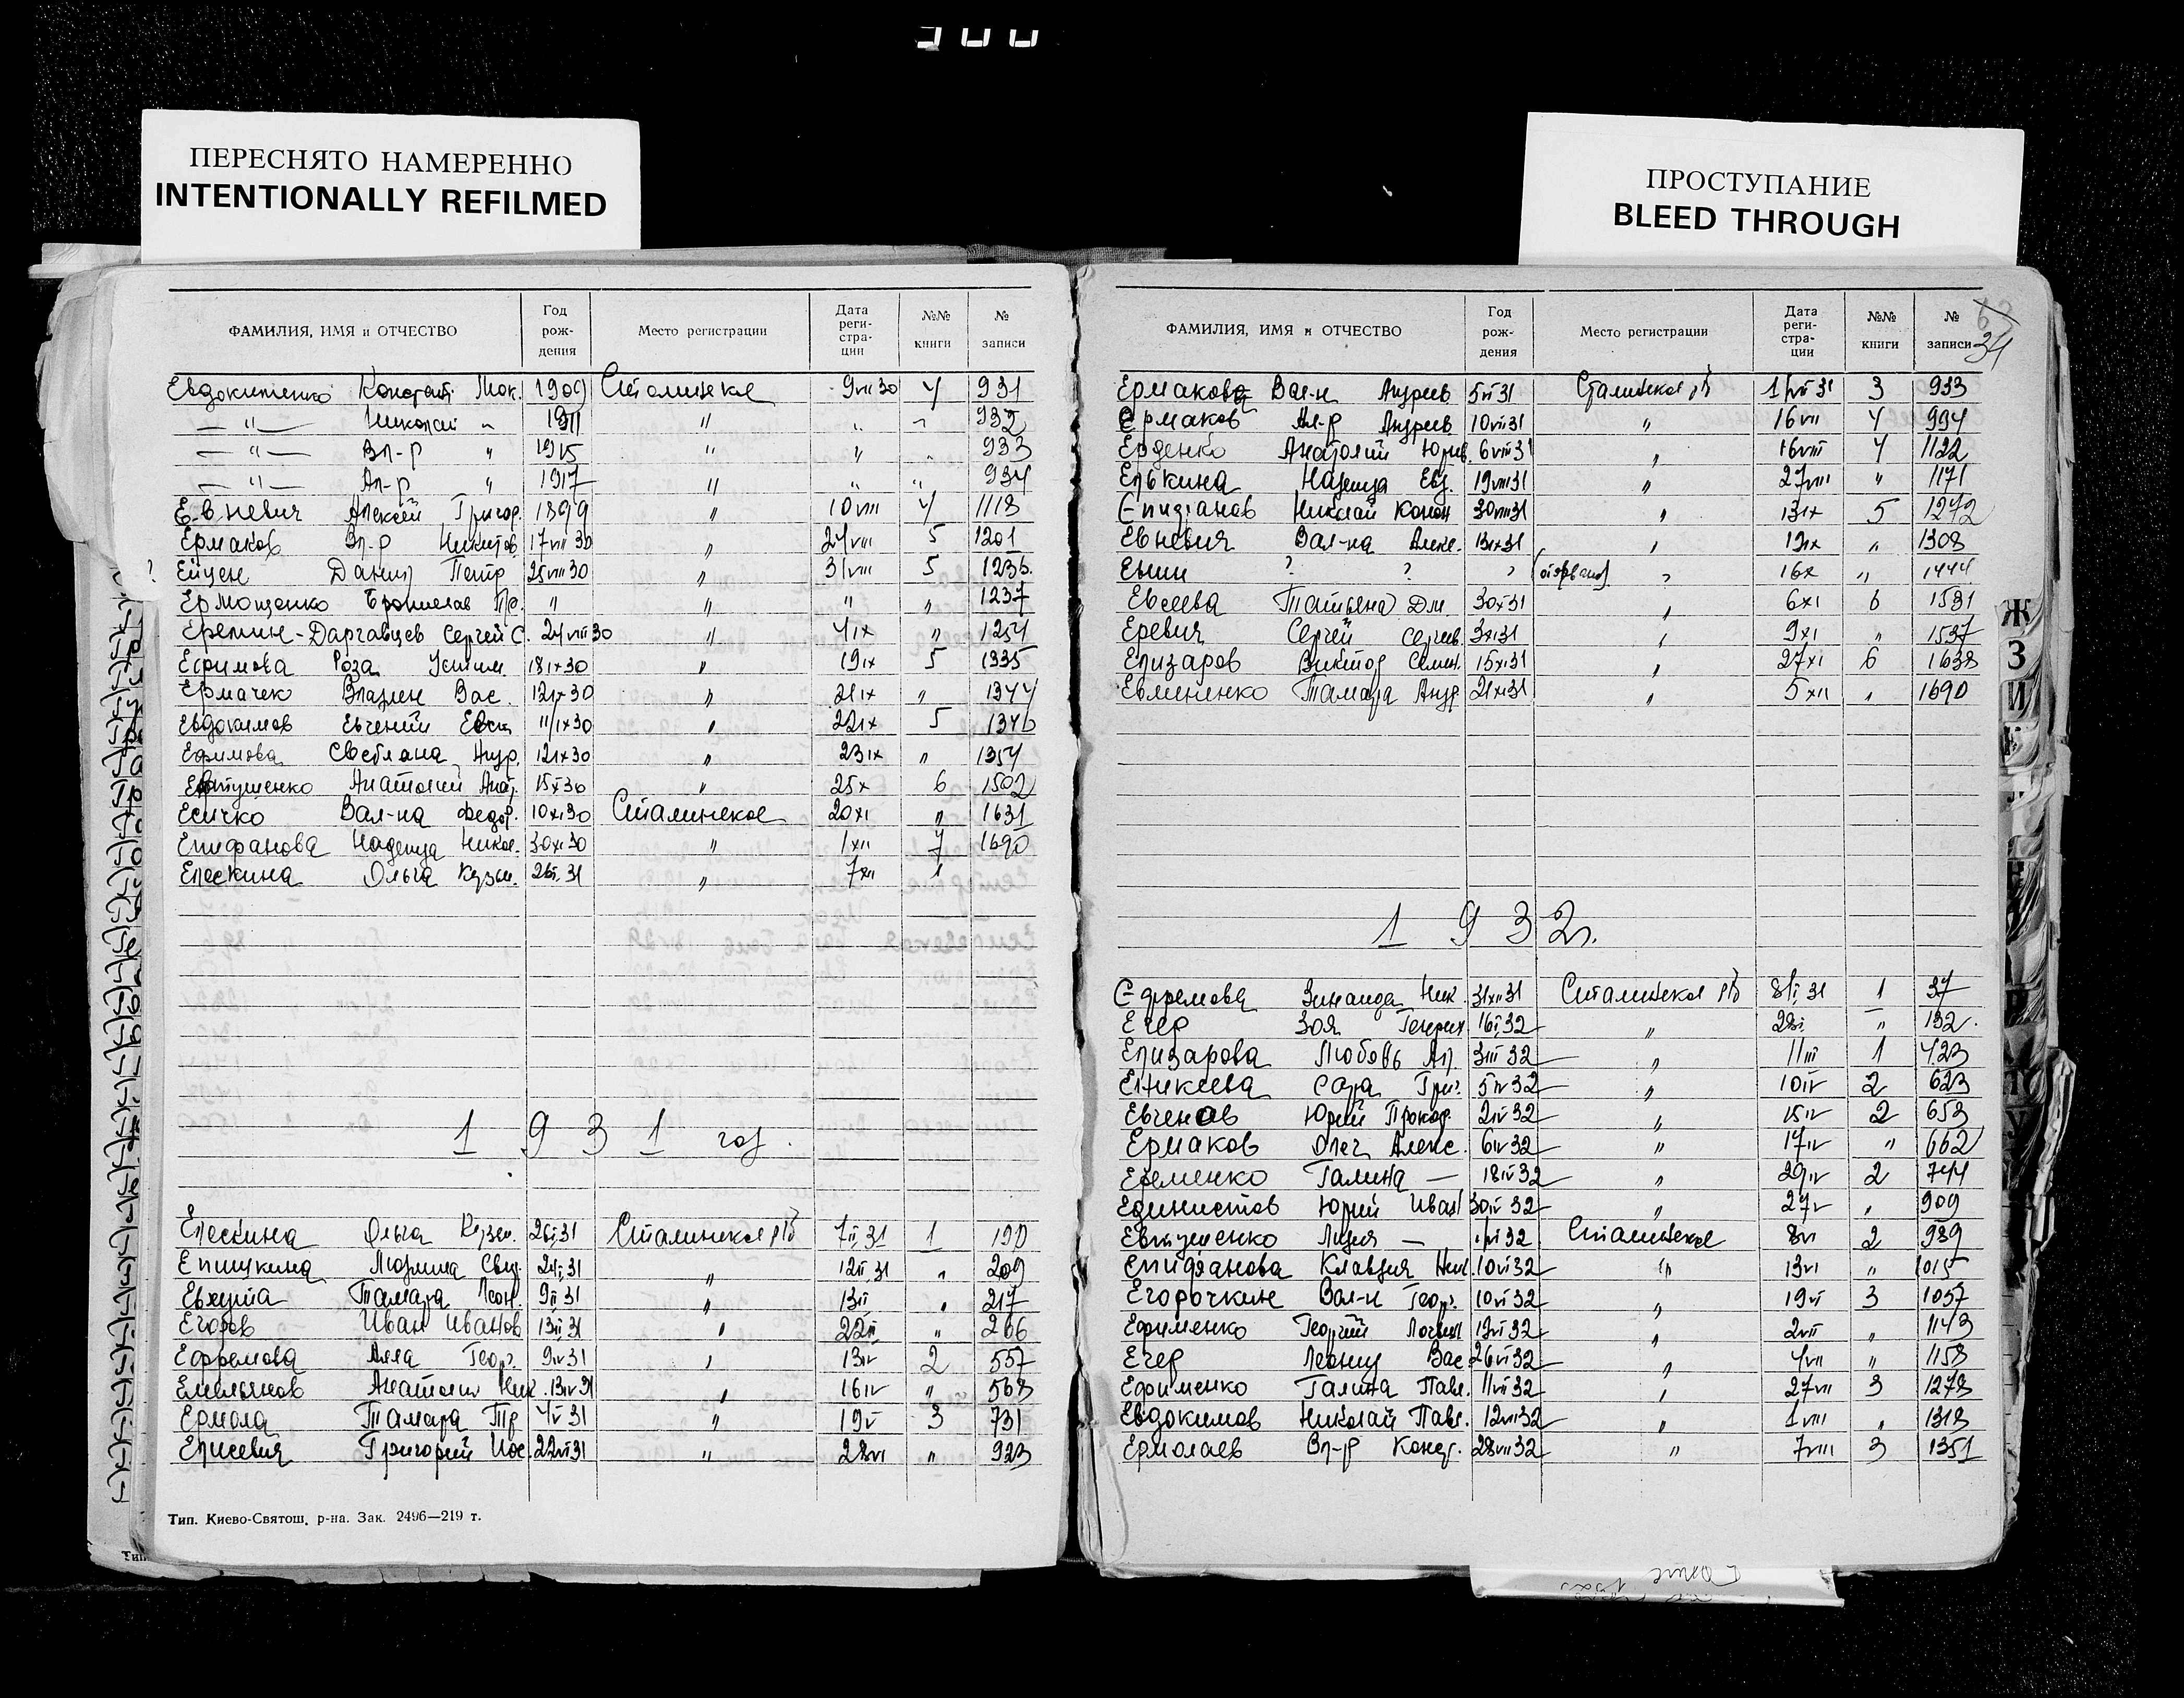 ПЕРЕСНЯТО НАМЕРЕННО
INTENTIONALLY REFILMED
ПРОСТУПАНИЕ
BLEED THROUGH
ФАМИЛИЯ, ИМЯ и ОТЧЕСТВО Год рождения Место регистрации Дата регистрации №№ книги № записи
Евдокименко Констант Мок. 1909 Сталинское 9 VII 30 4 931
— " — Николай " 1911 " " " 932
— " — Вл-р " 1915 " " " 933
— " — Ал-р " 1917 " " " 934
Евневич Алексей Григор. 1899 " 10 VIII 4 1118
Ермаков Вл-р Никитов. 17 VIII 30 " 24 VIII 5 1201
Данил Петр. 25 VIII 30 " 31 VIII 5 1236
Ермощенко Бронислав " " " " 1237
Еремин-Даргавцев Сергей С. 24 VIII 30 " 4 IX " 1254
Ефимова Роза Устим. 18 IX 30 " 19 IX 5 1335
Ермачек Владлен Вас. 12 IX 30 " 21 IX " 1344
Евдокимов Евгений 11 IX 30 " 22 IX 5 1346
Ефимова Светлана Андр. 12 IX 30 " 23 IX " 1354
Евтушенко Анатолий Анат. 15 X 30 " 25 X 6 1502
Есичко Вал-на Федор. 10 XI 30 Сталинское 20 XI " 1631
Епифанова Надежда Никол. 30 XI 30 " 1 XII 7 1690
Елескина Ольга Кузьм. 26 I 31 " 7 XII 1
1931 год.
Елескина Ольга Кузьм. 26 I 31 Сталинское р/б 7 II 31 1 190
Епишкина Людмила 24 I 31 " 12 II 31 " 209
Тамара Леон. 9 II 31 " 13 II " 217
Егоров Иван Иванов 13 II 31 " 22 II " 266
Ефремова Алла Георг. 9 IV 31 " 13 IV 2 557
Емельянов Анатолий Ник. 13 IV 31 " 16 IV " 568
Ермола Тамара Тр 4 V 31 " 19 V 3 731
Елисевич Григорий Иос. 22 VI 31 " 28 VI " 923
Тип. Киево-Святош. р-на. Зак. 2496—219 т.
34
ФАМИЛИЯ, ИМЯ и ОТЧЕСТВО Год рождения Место регистрации Дата регистрации №№ книги № записи
Ермаков Вал-н Андреев 5 VI 31 Сталинское р/б 1 VII 31 3 933
Ермаков Ал-р Андреев 10 VII 31 " 16 VII 4 994
Ерденко Анатолий Юрьев. 6 VIII 31 " 16 VIII 4 1122
Елькина Надежда Евд. 19 VIII 31 " 27 VIII " 1171
Епифанов Николай Конон 30 VIII 31 " 13 IX 5 1272
Евневич Вал-на Алекс. 13 IX 31 " 19 IX " 1308
? ? ? " 16 X " 1444
Евсеева Татьяна Дм. 30 X 31 " 6 XI 6 1581
Еревич Сергей Сергеев. 3 XI 31 " 9 XI " 1597
Елизаров Виктор Семен. 15 XI 31 " 27 XI 6 1638
Евмененко Тамара Андр 21 XI 31 " 5 XII " 1690
1932г.
Ефремова Зинаида Ник. 31 XII 31 Сталинское р/б 8 I 31 1 37
Егер Зоя Генрих 16 I 32 " 28 I " 132.
Елизарова Любовь Ал. 3 III 32 " 11 III 1 423
Еникеева Сара Григ. 5 IV 32 " 10 IV 2 623
Евгенов Юрий Прокоф. 2 IV 32 " 15 IV 2 653
Ермаков Олег Алекс. 6 IV 32 " 17 IV " 662
Еременко Галина — 18 IV 32 " 29 IV 2 744
Единистов Юрий Иван 30 IV 32 " 27 V " 909
Евтушенко Лидия — 1 VI 32 Сталинское 8 VI 2 989
Епифанова Клавдия Ник. 10 VI 32 " 13 VI " 1015
Егорочкин Вал-н Георг. 10 VI 32 " 19 VI 3 1057
Ефименко Георгий Логвин 13 VI 32 " 2 VII " 1143
Егер Леонид Вас. 26 VI 32 " 4 VII " 1158
Ефименко Галина Павл. 11 VII 32 " 27 VII 3 1278
Евдокимов Николай Павл. 12 VII 32 " 1 VIII " 1318
Ермолаев Вл-р Конст. 28 VII 32 " 7 VIII 3 1351
Ж
З
И